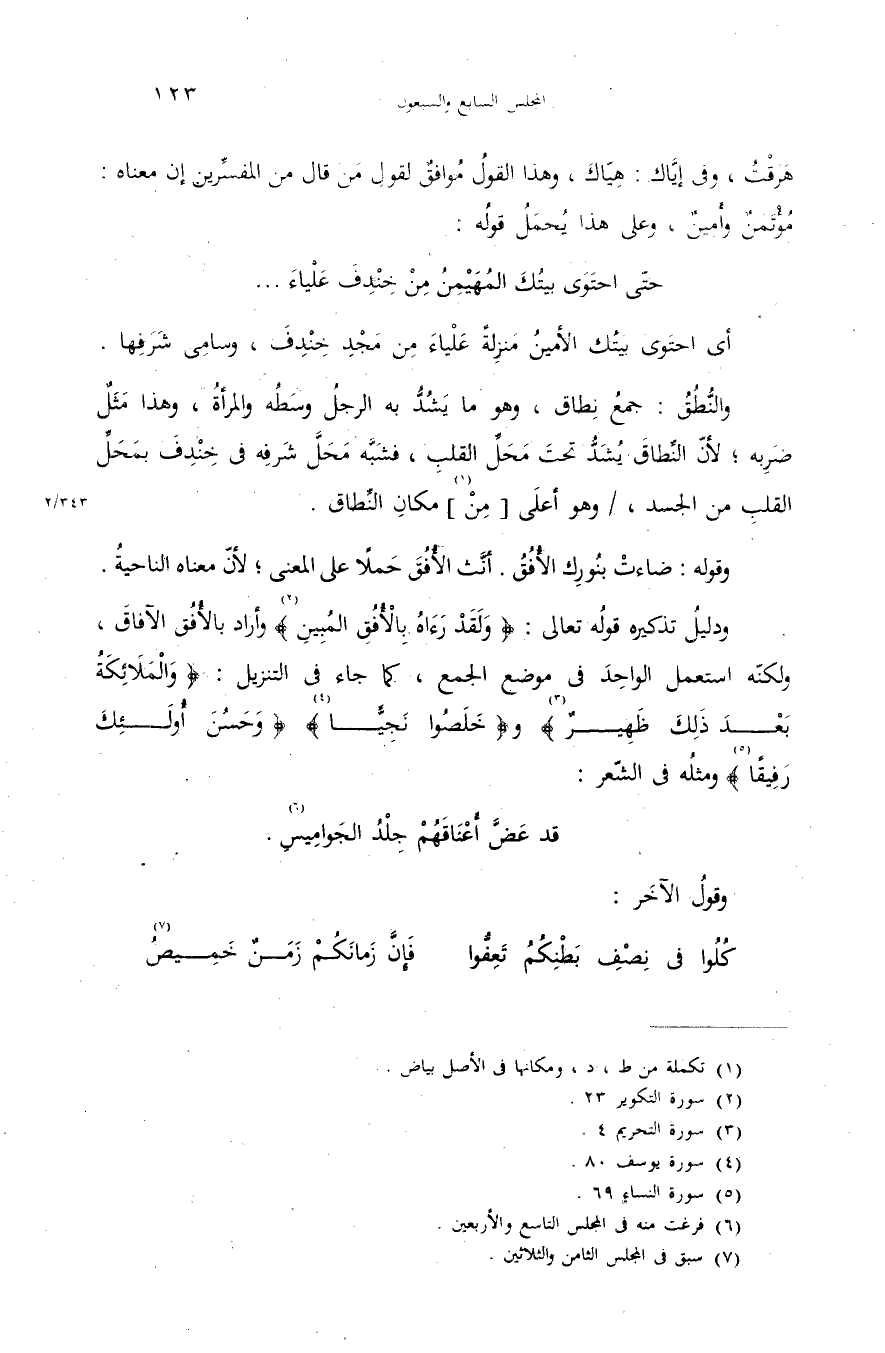 المجلس السابع والسبعون ١٢٣
هَرَقْتُ ، وفى إيَّاك : هِيّاكَ ، وهذا القولُ مُوافقٌ لقولِ مَن قال من المفسِّرين إن معناه :
مُؤْتَمنٌ وأَمينٌ ، وعلى هذا يُحمَلُ قولُه :
حتّى احتَوَى بيتُكَ المُهَيْمِنُ مِنْ خِنْدِفَ عَلْياءَ ...
أى احتوى بيتُك الأمينُ مَنزِلةً عَلْياءَ مِن مَجْدِ خِنْدِفَ ، وسامِى شَرَفِها .
والنُّطُقُ : جمعُ نِطاق ، وهو ما يَشُدُّ به الرجلُ وسَطُه والمرأةُ ، وهذا مَثَلٌ
ضَرِبه ؛ لأنّ النِّطاقَ يُشَدُّ تحتَ مَحَلِّ القلبِ ، فشبَّه مَحَلَّ شرفِه فى خِنْدِفَ بمَحَلِّ
القلبِ من الجسد ، / وهو أعلَى [ مِنْ ](١) مكانِ النِّطاق . ٢/٣٤٣
وقوله : ضاءتْ بنُورِك الأُفُقُ . أنَّث الأُفُقَ حَملًا على المعنى ؛ لأنّ معناه الناحيةُ .
ودليلُ تذكيره قولُه تعالى : ﴿ وَلَقَدْ رَءَاهُ بِالْأُفُقِ المُبِينِ ﴾(٢) وأراد بالأُفُق الآفاقَ ،
ولكنّه استعمل الواحِدَ فى موضع الجمع ، كما جاء فى التنزيل : ﴿ وَالْمَلَائِكَةُ
بَعْــدَ ذَلِكَ ظَهِيــرٌ ﴾(٣) و﴿ خَلَصُوا نَجِيًّــا ﴾(٤) ﴿ وَحَسُنَ أُولَــئِكَ
رَفِيقًا ﴾(٥) ومثلُه فى الشّعر :
قد عَضَّ أَعْنَاقَهُمْ جِلْدُ الجَوامِيسِ(٦) .
وقولُ الآخَر :
كُلُوا فى نِصْفِ بَطْنِكُمُ تَعِفُّوا فَإِنَّ زَمانَكُــمْ زَمَــنٌ خَمِــيصُ(٧)
(١) تكملة من ط ، د ، ومكانها فى الأصل بياض .
(٢) سورة التكوير ٢٣ .
(٣) سورة التحريم ٤ .
(٤) سورة يوسف ٨٠ .
(٥) سورة النساء ٦٩ .
(٦) فرغت منه فى المجلس التاسع والأربعين .
(٧) سبق فى المجلس الثامن والثلاثين .